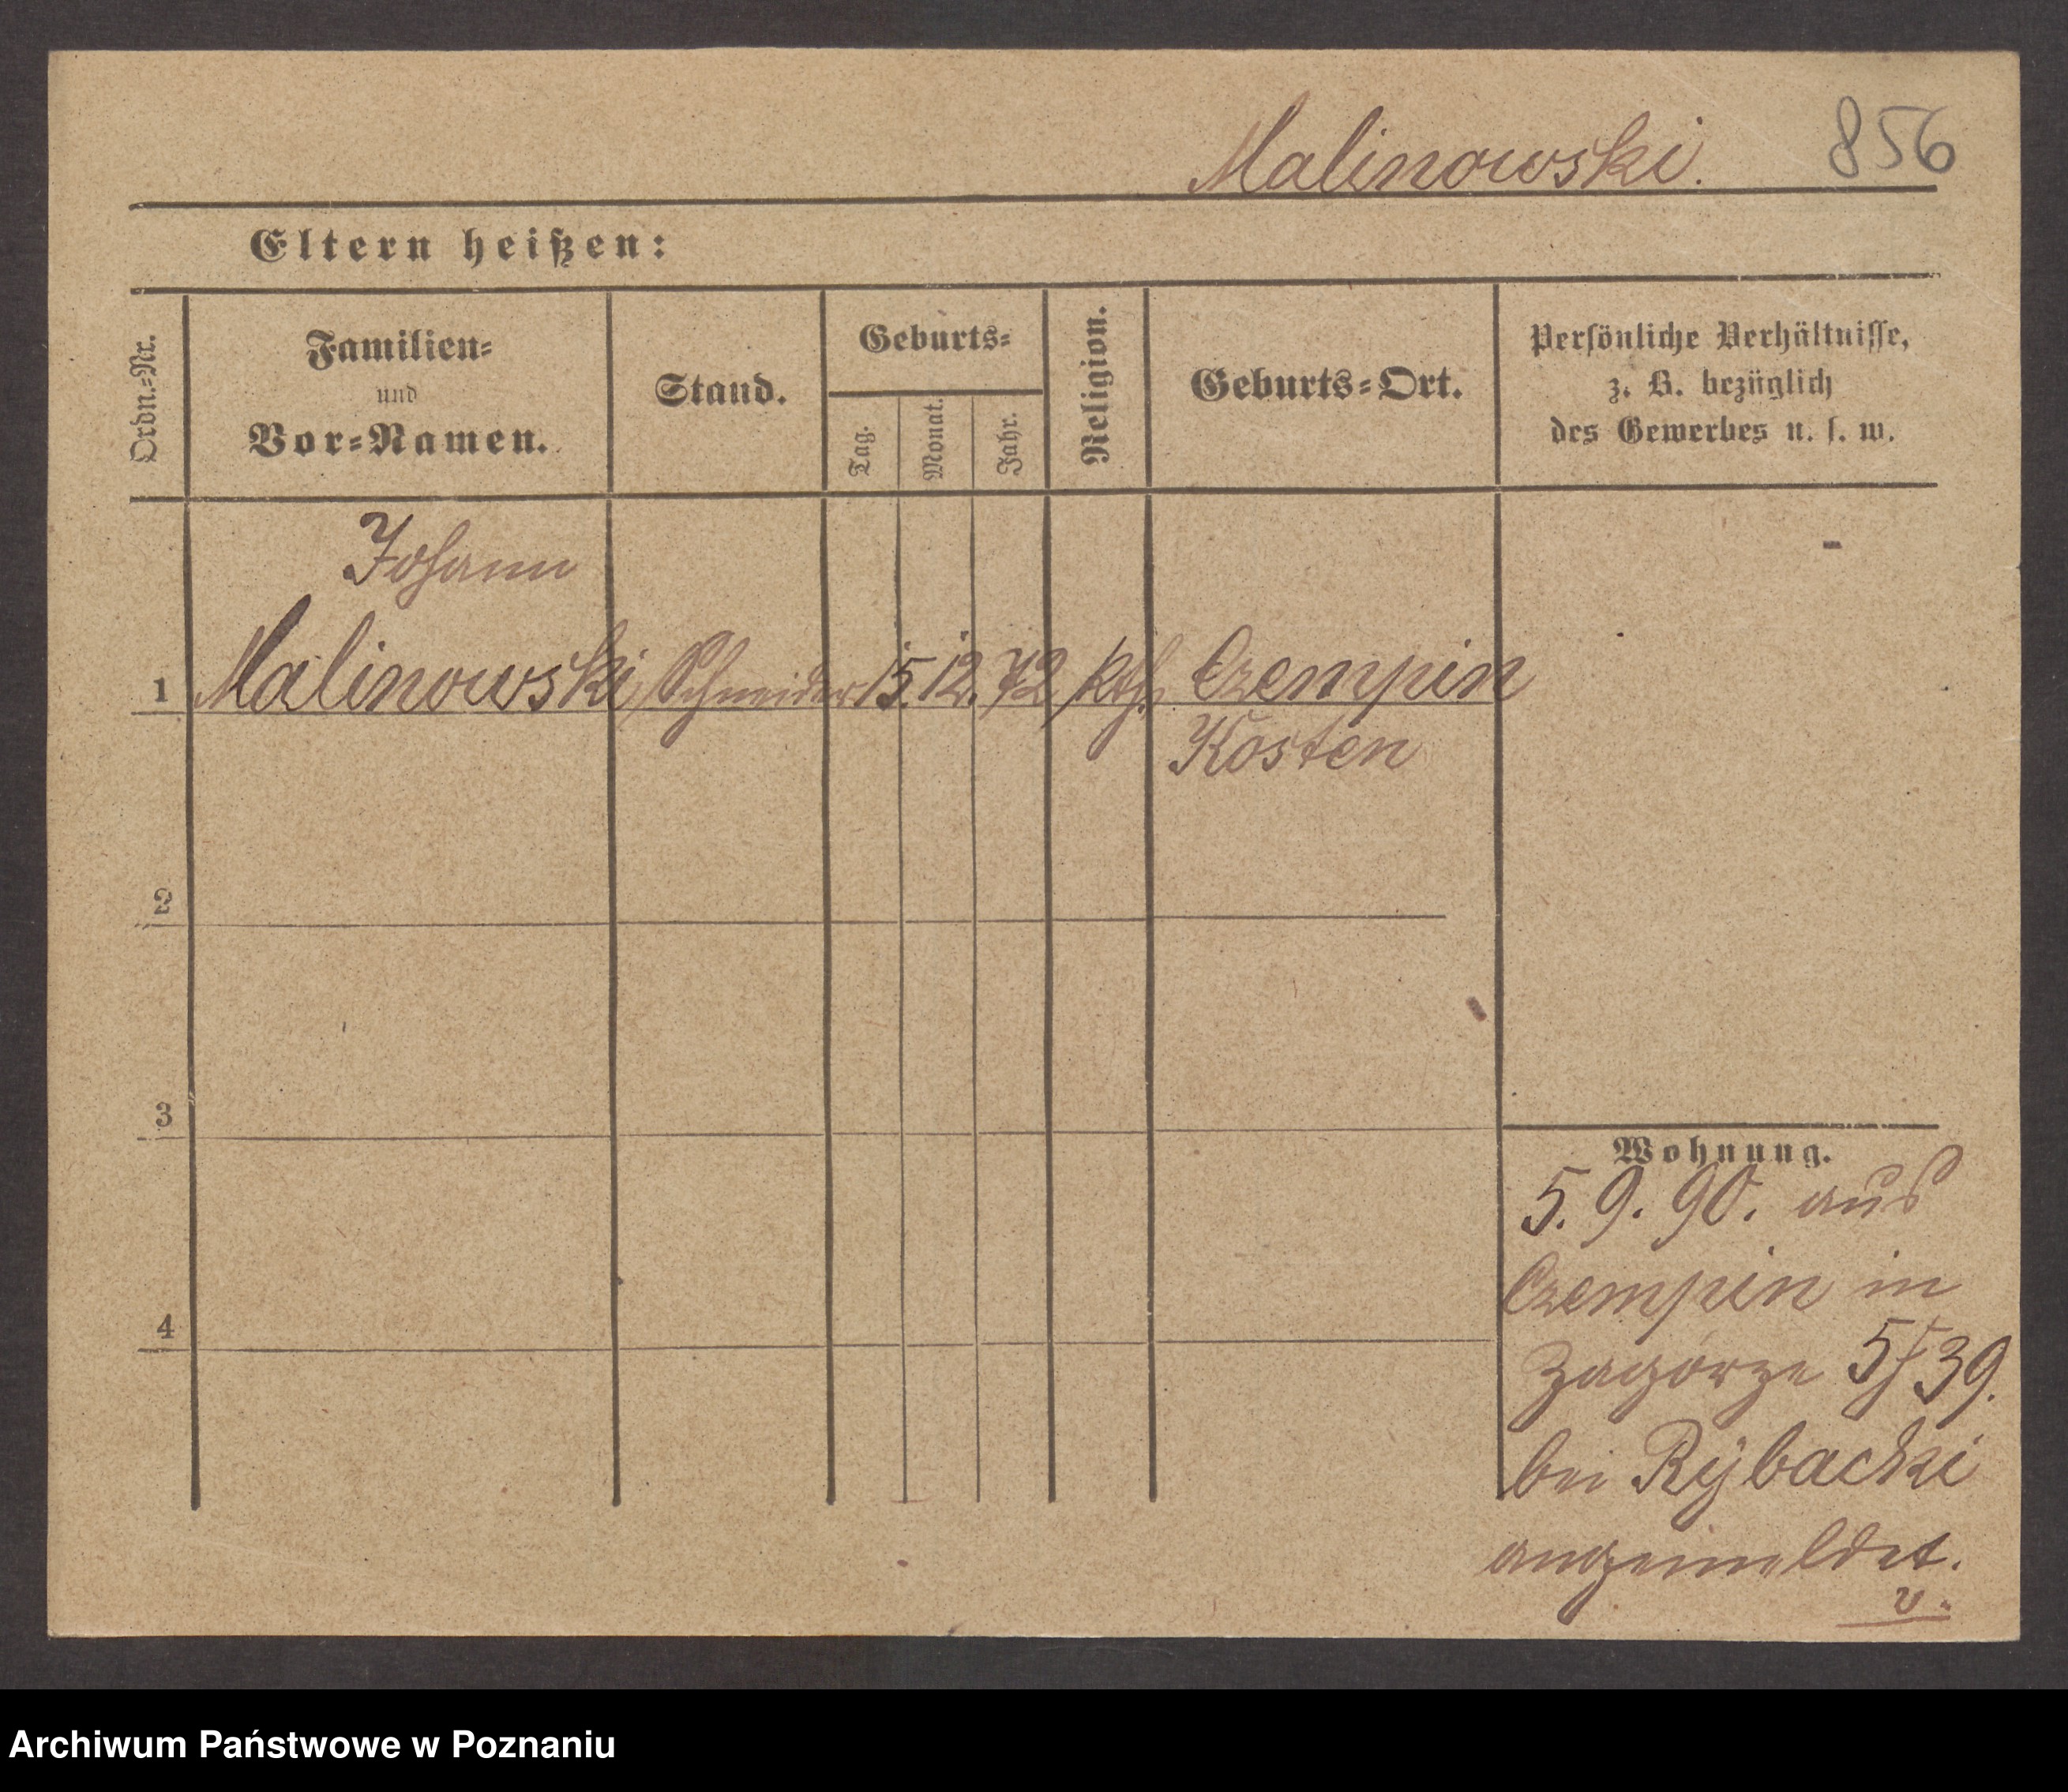 Malinowski. 856
Eltern heißen:
Ordn.=Nr.
Familien=
und
Vor=Namen.
Stand.
Geburts=
Tag.
Monat.
Jahr.
Religion.
Geburts=Ort.
Persönliche Verhältnisse,
z. B. bezüglich
des Gewerbes u. s. w.
Johann
1 Malinowski Schneider 15. 12. 72 kth. Czempin
Kosten
2
3
4
Wohnung.
5. 9. 90. aus
Czempin in
Zagórze 5/39.
bei Rybacki
angemeldet.
v.
Archiwum Państwowe w Poznaniu